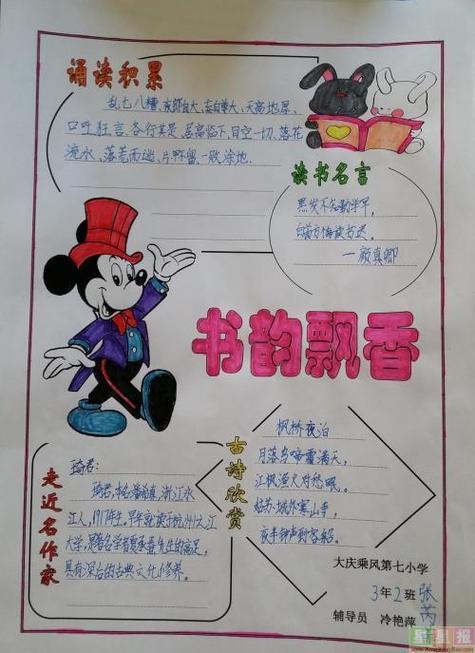 诵读积累
乱七八糟、夜郎自大、妄自尊大、天高地厚、
口吐狂言、各行其是、居高临下、目空一切、落花
流水、落荒而逃、片甲不留、一败涂地.
读书名言
黑发不知勤学早,
白首方悔读书迟。
—颜真卿
书韵飘香
走近名作家
琦君:
琦君,书名潘希真,浙江永
江人,1917年生,早年就读于杭州大江
大学,
具有深治的古典文化修养。
古诗欣赏
枫桥夜泊
月落乌啼霜满天,
江枫渔火对愁眠。
姑苏城外寒山寺,
夜半钟声到客船。
大庆乘风第七小学
3年2班 张芮
辅导员 冷艳萍
星星报